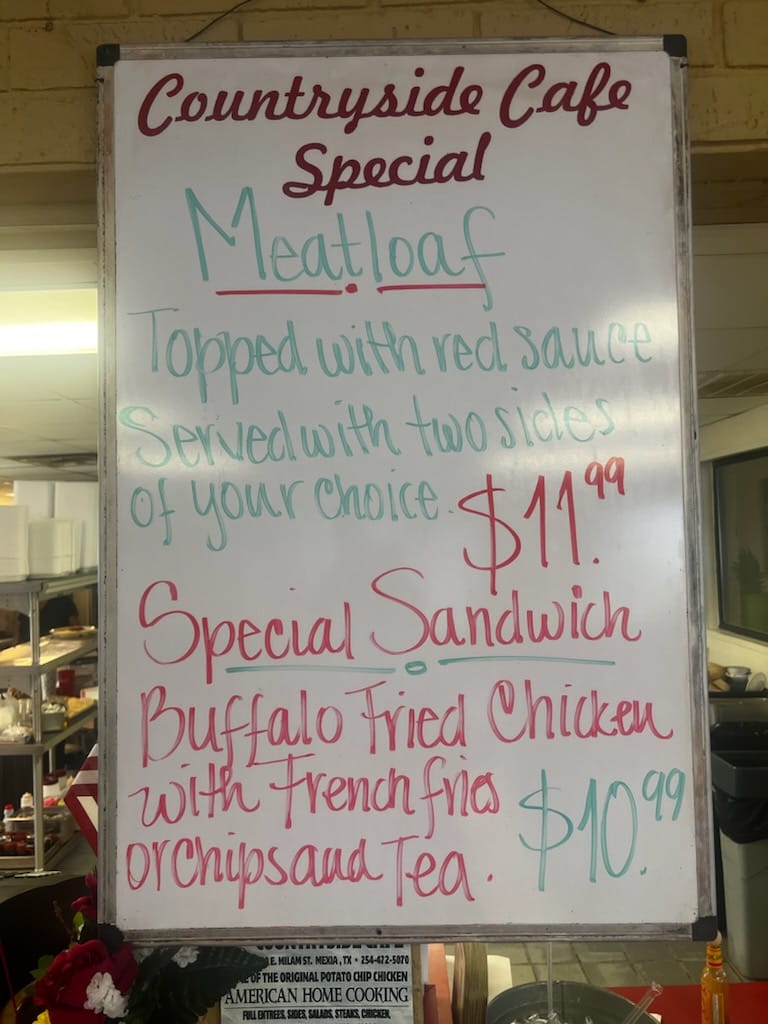 Countryside Cafe
Special
Meatloaf
Topped with red sauce
Served with two sides
of your choice. $11.99
Special Sandwich
Buffalo Fried Chicken
with French fries
or chips and Tea. $10.99
E. MILAM ST. MEXIA, TX • 254-472-5070
OF THE ORIGINAL POTATO CHIP CHICKEN
AMERICAN HOME COOKING
FULL ENTREES, SIDES, SALADS, STEAKS, CHICKEN,